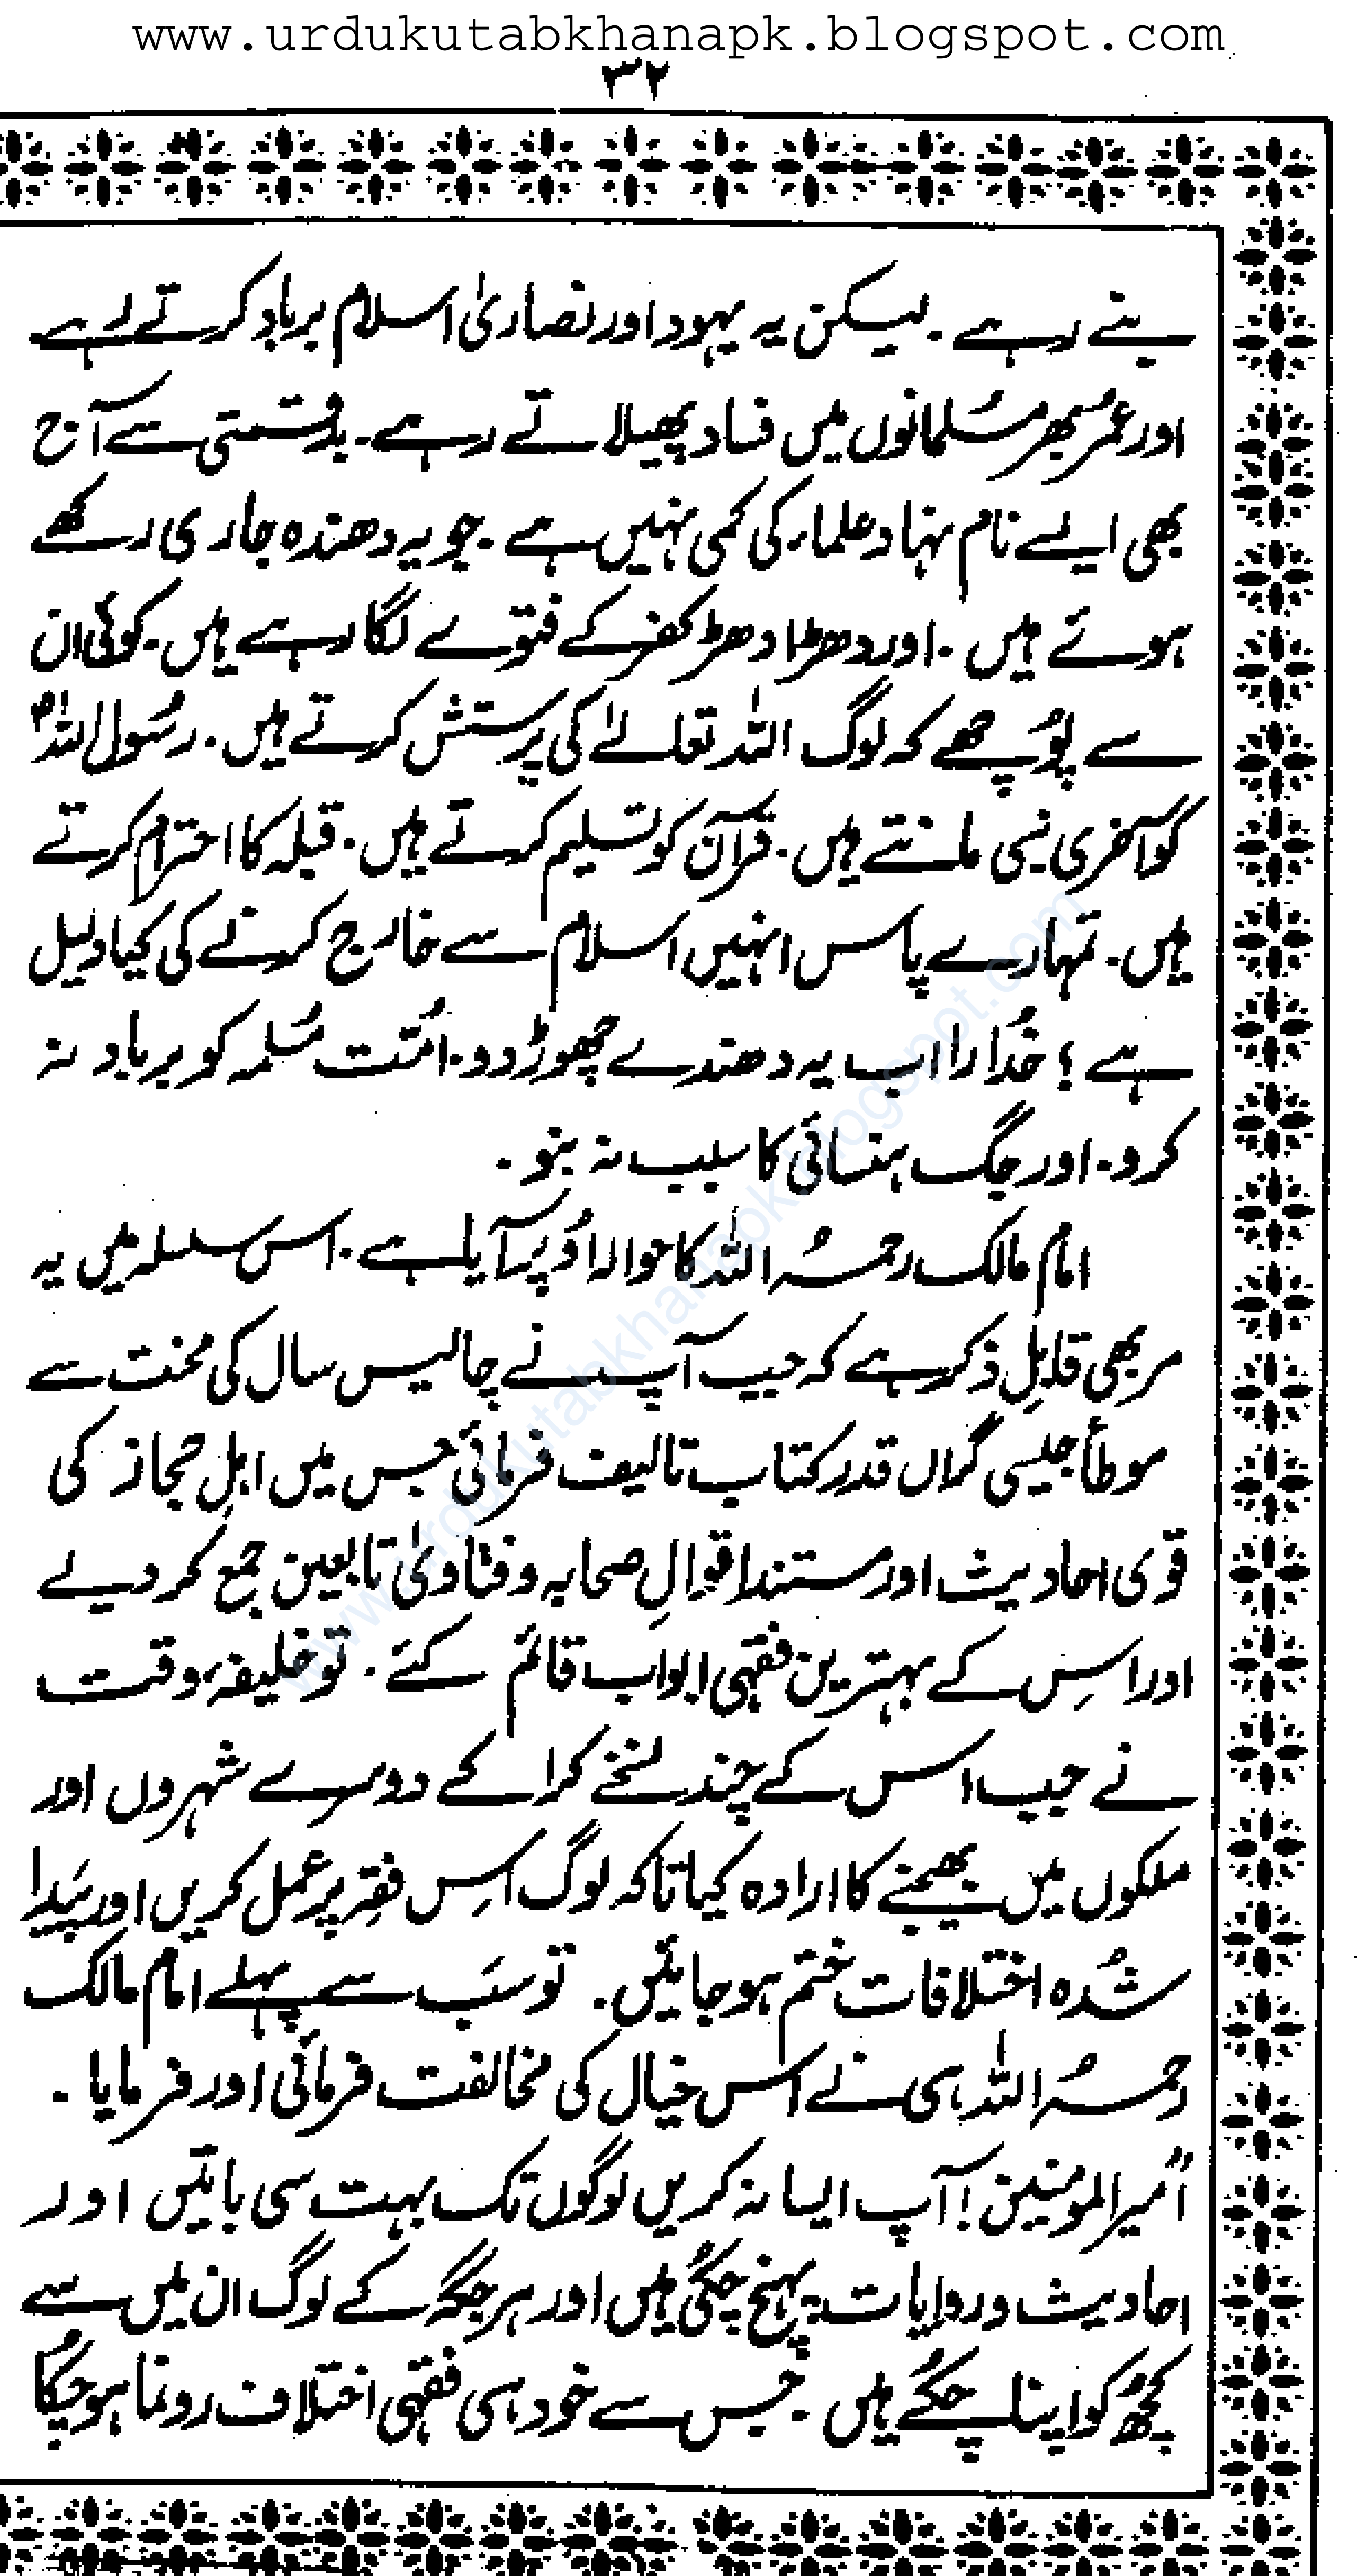 www.urdukutabkhanapk.blogspot.com
۳۲
بنے رہے ۔ لیکن یہ یہود اور نصاریٰ اسلام برباد کرتے رہے
اور عمر بھر مُسلمانوں میں فساد پھیلاتے رہے ۔ بدقسمتی سے آج
بھی ایسے نام نہاد علماء کی کمی نہیں ہے ۔ جو یہ دھندہ جاری رکھے
ہوئے ہیں ۔ اور دھڑا دھڑ کفر کے فتوے لگا رہے ہیں ۔ کوئی ان
سے پُوچھے کہ لوگ اللہ تعالےٰ کی پرستش کرتے ہیں ۔ رسُول اللہؐ
کو آخری نبی مانتے ہیں ۔ قرآن کو تسلیم کرتے ہیں ۔ قبلہ کا احترام کرتے
ہیں ۔ تمہارے پاس انہیں اسلام سے خارج کرنے کی کیا دلیل
ہے ؟ خُدارا اب یہ دھندے چھوڑ دو ۔ اُمّت مُسلمہ کو برباد نہ
کرو ۔ اور جگ ہنسائی کا سبب نہ بنو ۔
امام مالک رحمہُ اللہ کا حوالہ اُوپر آیا ہے ۔ اس سلسلہ میں یہ
مر بھی قابلِ ذکر ہے کہ جب آپ نے چالیس سال کی محنت سے
موطأ جیسی گراں قدر کتاب تالیف فرمائی جس میں اہلِ حجاز کی
قوی احادیث اور مستند اقوالِ صحابہ و فتاویٰ تابعین جمع کر دیے
اور اسِ کے بہترین فقہی ابواب قائم کئے ۔ تو خلیفۂ وقت
نے جب اس کے چند نسخے کرا کے دوسرے شہروں اور
ملکوں میں بھیجنے کا ارادہ کیا تاکہ لوگ اسِ فقِہ پر عمل کریں اور پَیدا
شُدہ اختلافات ختم ہو جائیں ۔ تو سَب سے پہلے امام مالک
رحمہُ اللہ ہی نے اس خیال کی مخالفت فرمائی اور فرمایا ۔
"امیر المومنین ! آپ ایسا نہ کریں لوگوں تک بہت سی باتیں اور
احادیث و روایات پہنچ چکُی ہیں اور ہر جگہ کے لوگ ان میں سے
کچُھ کو اپنا چکُے ہیں ۔ جس سے خود ہی فقہی اختلاف رونما ہو چکُا
www.urdukutabkhanapk.blogspot.com